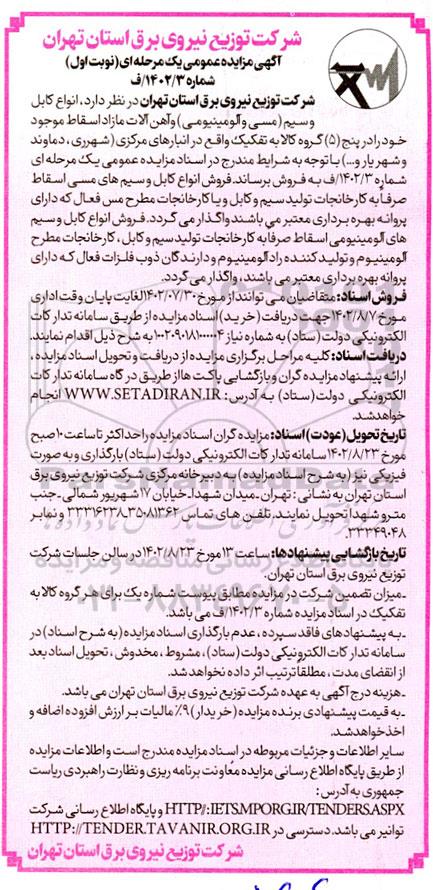 شرکت توزیع نیروی برق استان تهران
آگهی مزایده عمومی یک مرحله ای (نوبت اول)
شماره ۱۴۰۲/۳/ف
شرکت توزیع نیروی برق استان تهران در نظر دارد، انواع کابل
و سیم (مسی و آلومینیومی) و آهن آلات مازاد اسقاط موجود
خود را در پنج (۵) گروه کالا به تفکیک واقع در انبارهای مرکزی (شهرری، دماوند
و شهریار و...) با توجه به شرایط مندرج در اسناد مزایده عمومی یک مرحله ای
شماره ۱۴۰۲/۳/ف به فروش برساند. فروش انواع کابل و سیم های مسی اسقاط
صرفا به کارخانجات تولید سیم و کابل و یا کارخانجات مطرح مس فعال که دارای
پروانه بهره برداری معتبر می باشند واگذار می گردد. فروش انواع کابل و سیم
های آلومینیومی اسقاط صرفا به کارخانجات تولید سیم و کابل، کارخانجات مطرح
آلومینیوم و تولید کننده راد آلومینیوم و دارندگان ذوب فلزات فعال که دارای
پروانه بهره برداری معتبر می باشند، واگذار می گردد.
فروش اسناد: متقاضیان می توانند از مورخ ۱۴۰۲/۰۷/۳۰ لغایت پایان وقت اداری
مورخ ۱۴۰۲/۸/۷ جهت دریافت (خرید) اسناد مزایده از طریق سامانه تدارکات
الکترونیکی دولت (ستاد) به شماره نیاز ۱۰۰۲۰۹۰۱۸۱۰۰۰۰۰۴ به شرح ذیل اقدام نمایند.
دریافت اسناد: کلیه مراحل برگزاری مزایده از دریافت و تحویل اسناد مزایده،
ارائه پیشنهاد مزایده گران و بازگشایی پاکت ها از طریق درگاه سامانه تدارکات
الکترونیکی دولت (ستاد) به آدرس: WWW.SETADIRAN.IR انجام
خواهد شد.
تاریخ تحویل (عودت) اسناد: مزایده گران اسناد مزایده را حداکثر تا ساعت ۱۰ صبح
مورخ ۱۴۰۲/۸/۲۳ سامانه تدارکات الکترونیکی دولت (ستاد) بارگذاری و به صورت
فیزیکی نیز (به شرح اسناد مزایده) به دبیرخانه مرکزی شرکت توزیع نیروی برق
استان تهران به نشانی: تهران - میدان شهدا - خیابان ۱۷ شهریور شمالی - جنب
مترو شهدا تحویل نمایند. تلفن های تماس ۳۵۰۸۱۳۶۲-۳۳۳۱۶۲۳۸ و نمابر
۳۳۳۴۹۰۴۸.
تاریخ بازگشایی پیشنهادها: ساعت ۱۳ مورخ ۱۴۰۲/۸/۲۳ در سالن جلسات شرکت
توزیع نیروی برق استان تهران.
- میزان تضمین شرکت در مزایده مطابق پیوست شماره یک برای هر گروه کالا به
تفکیک در اسناد مزایده شماره ۱۴۰۲/۳/ف می باشد.
- به پیشنهادهای فاقد سپرده، عدم بارگذاری اسناد مزایده (به شرح اسناد) در
سامانه تدارکات الکترونیکی دولت (ستاد)، مشروط، مخدوش، تحویل اسناد بعد
از انقضای مدت، مطلقا ترتیب اثر داده نخواهد شد.
- هزینه درج آگهی به عهده شرکت توزیع نیروی برق استان تهران می باشد.
- به قیمت پیشنهادی برنده مزایده (خریدار) ۹٪ مالیات بر ارزش افزوده اضافه و
اخذ خواهد شد.
سایر اطلاعات و جزئیات مربوطه در اسناد مزایده مندرج است و اطلاعات مزایده
از طریق پایگاه اطلاع رسانی مزایده معاونت برنامه ریزی و نظارت راهبردی ریاست
جمهوری به آدرس:
HTTP//:IETS.MPORG.IR/TENDERS.ASPX و پایگاه اطلاع رسانی شرکت
توانیر می باشد. دسترسی در HTTP://TENDER.TAVANIR.ORG.IR
شرکت توزیع نیروی برق استان تهران